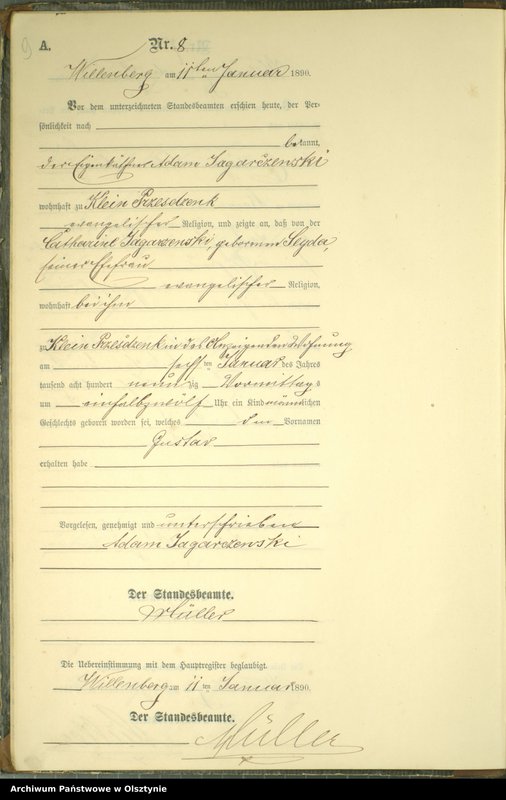 9
A.
Nr. 8
Willenberg am 11ten Januar 1890.
Vor dem unterzeichneten Standesbeamten erschien heute, der Per-
sönlichkeit nach
bekannt,
der Eigenkäthner Adam Jagarczewski
wohnhaft zu Klein Przesdzenk
evangelischer Religion, und zeigte an, daß von der
Catharine Jagarzenski, geborenen Seyda,
seiner Ehefrau
evangelischer Religion,
wohnhaft bei ihm
zu Klein Przesdzenk in des Anzeigenden Wohnung
am sechsten Januar des Jahres
tausend acht hundert neunzig Vormittags
um einhalbzwölf Uhr ein Kind männlichen
Geschlechts geboren worden sei, welches den Vornamen
Gustav
erhalten habe
Vorgelesen, genehmigt und unterschrieben
Adam Jagarczewski
Der Standesbeamte.
Müller
Die Uebereinstimmung mit dem Hauptregister beglaubigt.
Willenberg am 11ten Januar 1890.
Der Standesbeamte.
Müller
Archiwum Państwowe w Olsztynie